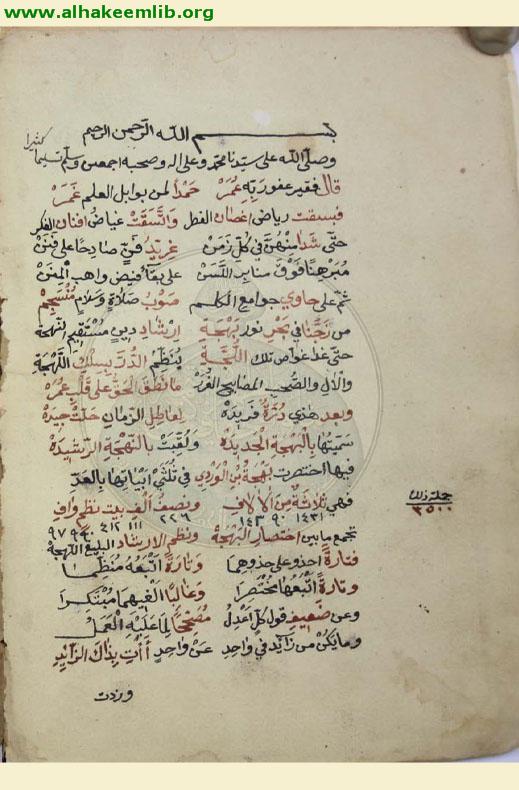 www.alhakeemlib.org
بسم الله الرحمن الرحيم
وصلى الله على سيدنا محمد وعلى اله وصحبه اجمعين وسلم تسليما كثيرا
قال فقير عفو ربه عمر حمدا لمن بوابل العلم غمر
فبسقت رياض اغصان الفطر واتسقت غياض افنان الفكر
حتى شدا منهن في كل زمن غريد فن صادحا على فنن
مبرهنا فوق منابر اللسن على بقا فيض واهب المنن
ثم على حاوي جوامع الكلم صوب صلاة وسلام منسجم
من زجنا في بحر نور بهجة ارشاد دين مستقيم النهجة
حتى غدا غواص تلك اللجة ينظم الدر بسلك اللهجة
والال والصحب المصابيح الغرر ما نطق الحق على قلب عمر
وبعد هذي درة فريده لعاطل الزمان حلت جيده
سميتها بالبهجة الجديده ولقبت بالنهجة الرشيده
فيها اختصرت بهجة بن الوردي في ثلثي ابياتها بالعد
فهي ثلاثة من الآلاف ونصف الف بيت نظم واف
جملة ذلك
٣٥٠٠
١٤٣١ ٩٠ ١٤٣ ٢٢٦ ١١١ ٤١٢
تجمع ما بين اختصار البهجة ونظم الارشاد البليغ اللهجة
فتارة احذو على حذوهما وتارة اتبعه منظما
وتارة اتبعها مختصرا وغالبا الغيهما مبتكرا
وعن ضعيف قول كل اعدل مصححا لما عليه العمل
وما يكن من زايد في واحد عن واحد أأت بذاك الزايد
وزدت